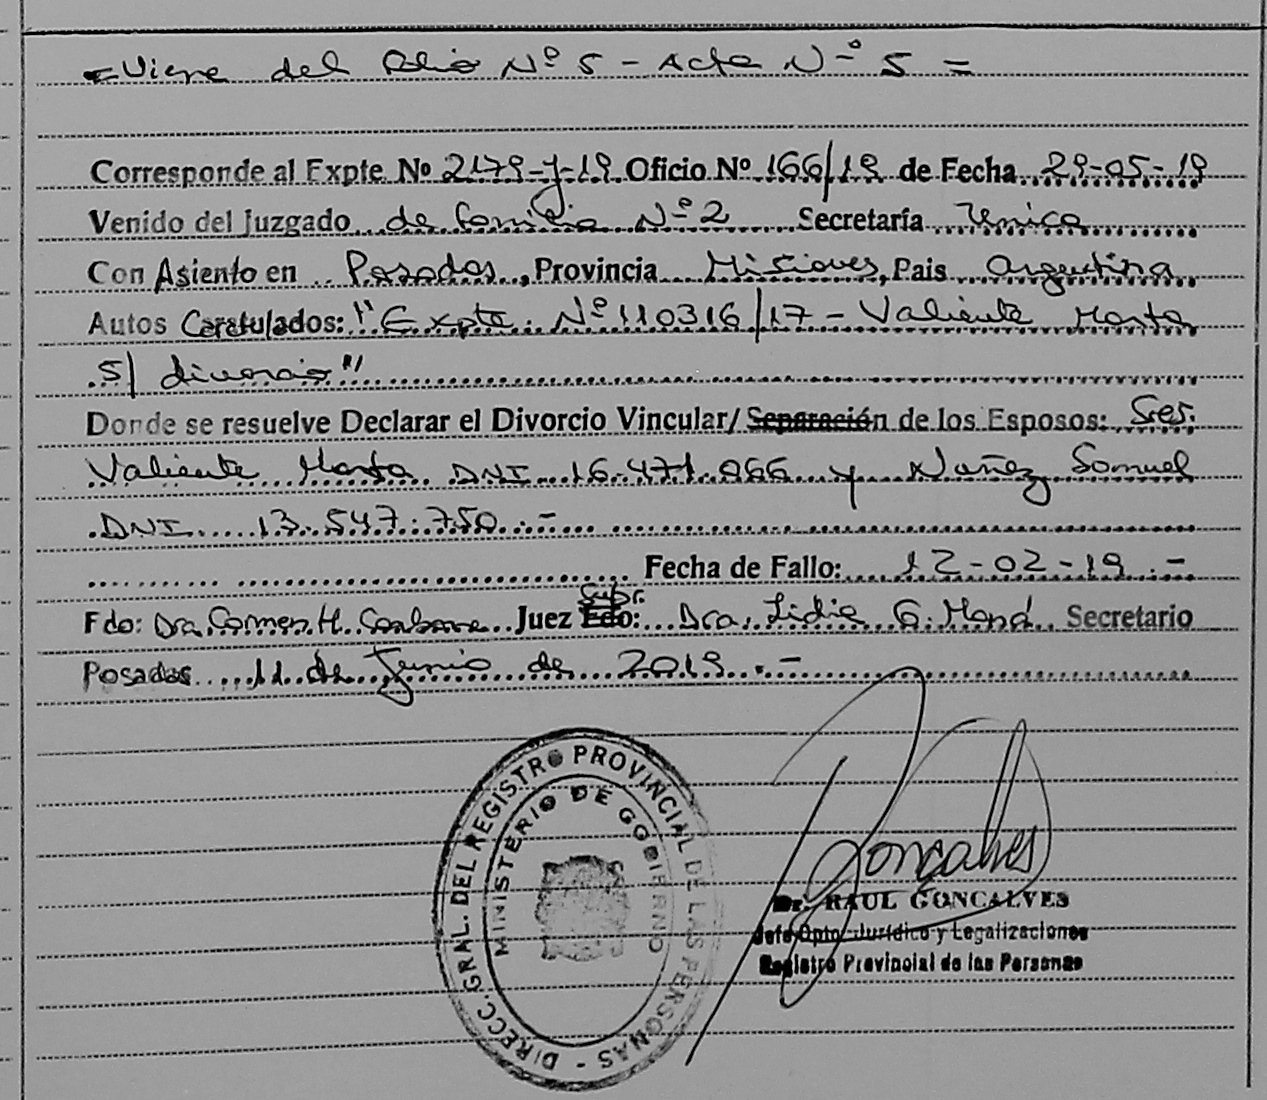 =Viene del folio Nº 5 - Acta Nº 5 =
Corresponde al Expte Nº 2179-J-19 Oficio Nº 166/19 de Fecha 29-05-19
Venido del Juzgado de familia Nº 2 Secretaría Unica
Con Asiento en Posadas, Provincia Misiones, Pais Argentina
Autos Caratulados: "Expte. Nº 110316/17 - Valiente Marta
S/ divorcio"
Donde se resuelve Declarar el Divorcio Vincular/ Separación de los Esposos: Sres.
Valiente Marta DNI 16.471.066 y Nuñez Samuel
DNI 13.547.750.-
Fecha de Fallo: 12-02-19.-
Fdo: Dra. Carmen H. Carbone Juez Subr. Fdo: Dra. Lidia G. Secretario
Posadas 11 de Junio de 2019.-
DIRECC. GRAL. DEL REGISTRO PROVINCIAL DE LAS PERSONAS -
MINISTERIO DE GOBIERNO
Gonçalves
Dr. RAUL GONCALVES
Jefe Dpto. Jurídico y Legalizaciones
Registro Provincial de las Personas